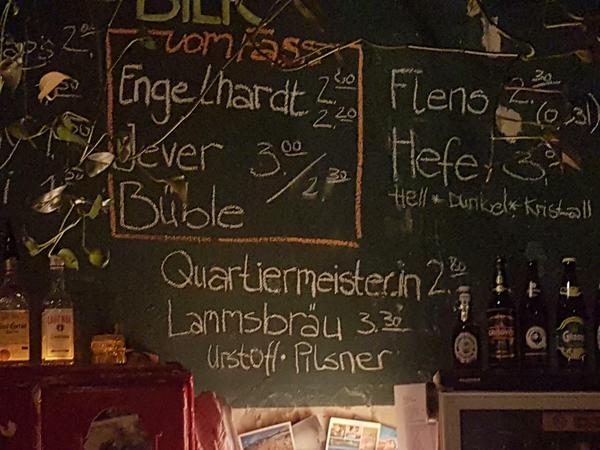 BIER
vom Fass
Engelhardt 2.80
2.20
Jever 3.00/2.30
Büble
Flens 2.30
(0,3l)
Hefe 3.
Hell * Dunkel * Kristall
Quartiermeister.in 2.80
Lammsbräu 3.30
Urstoff · Pilsner